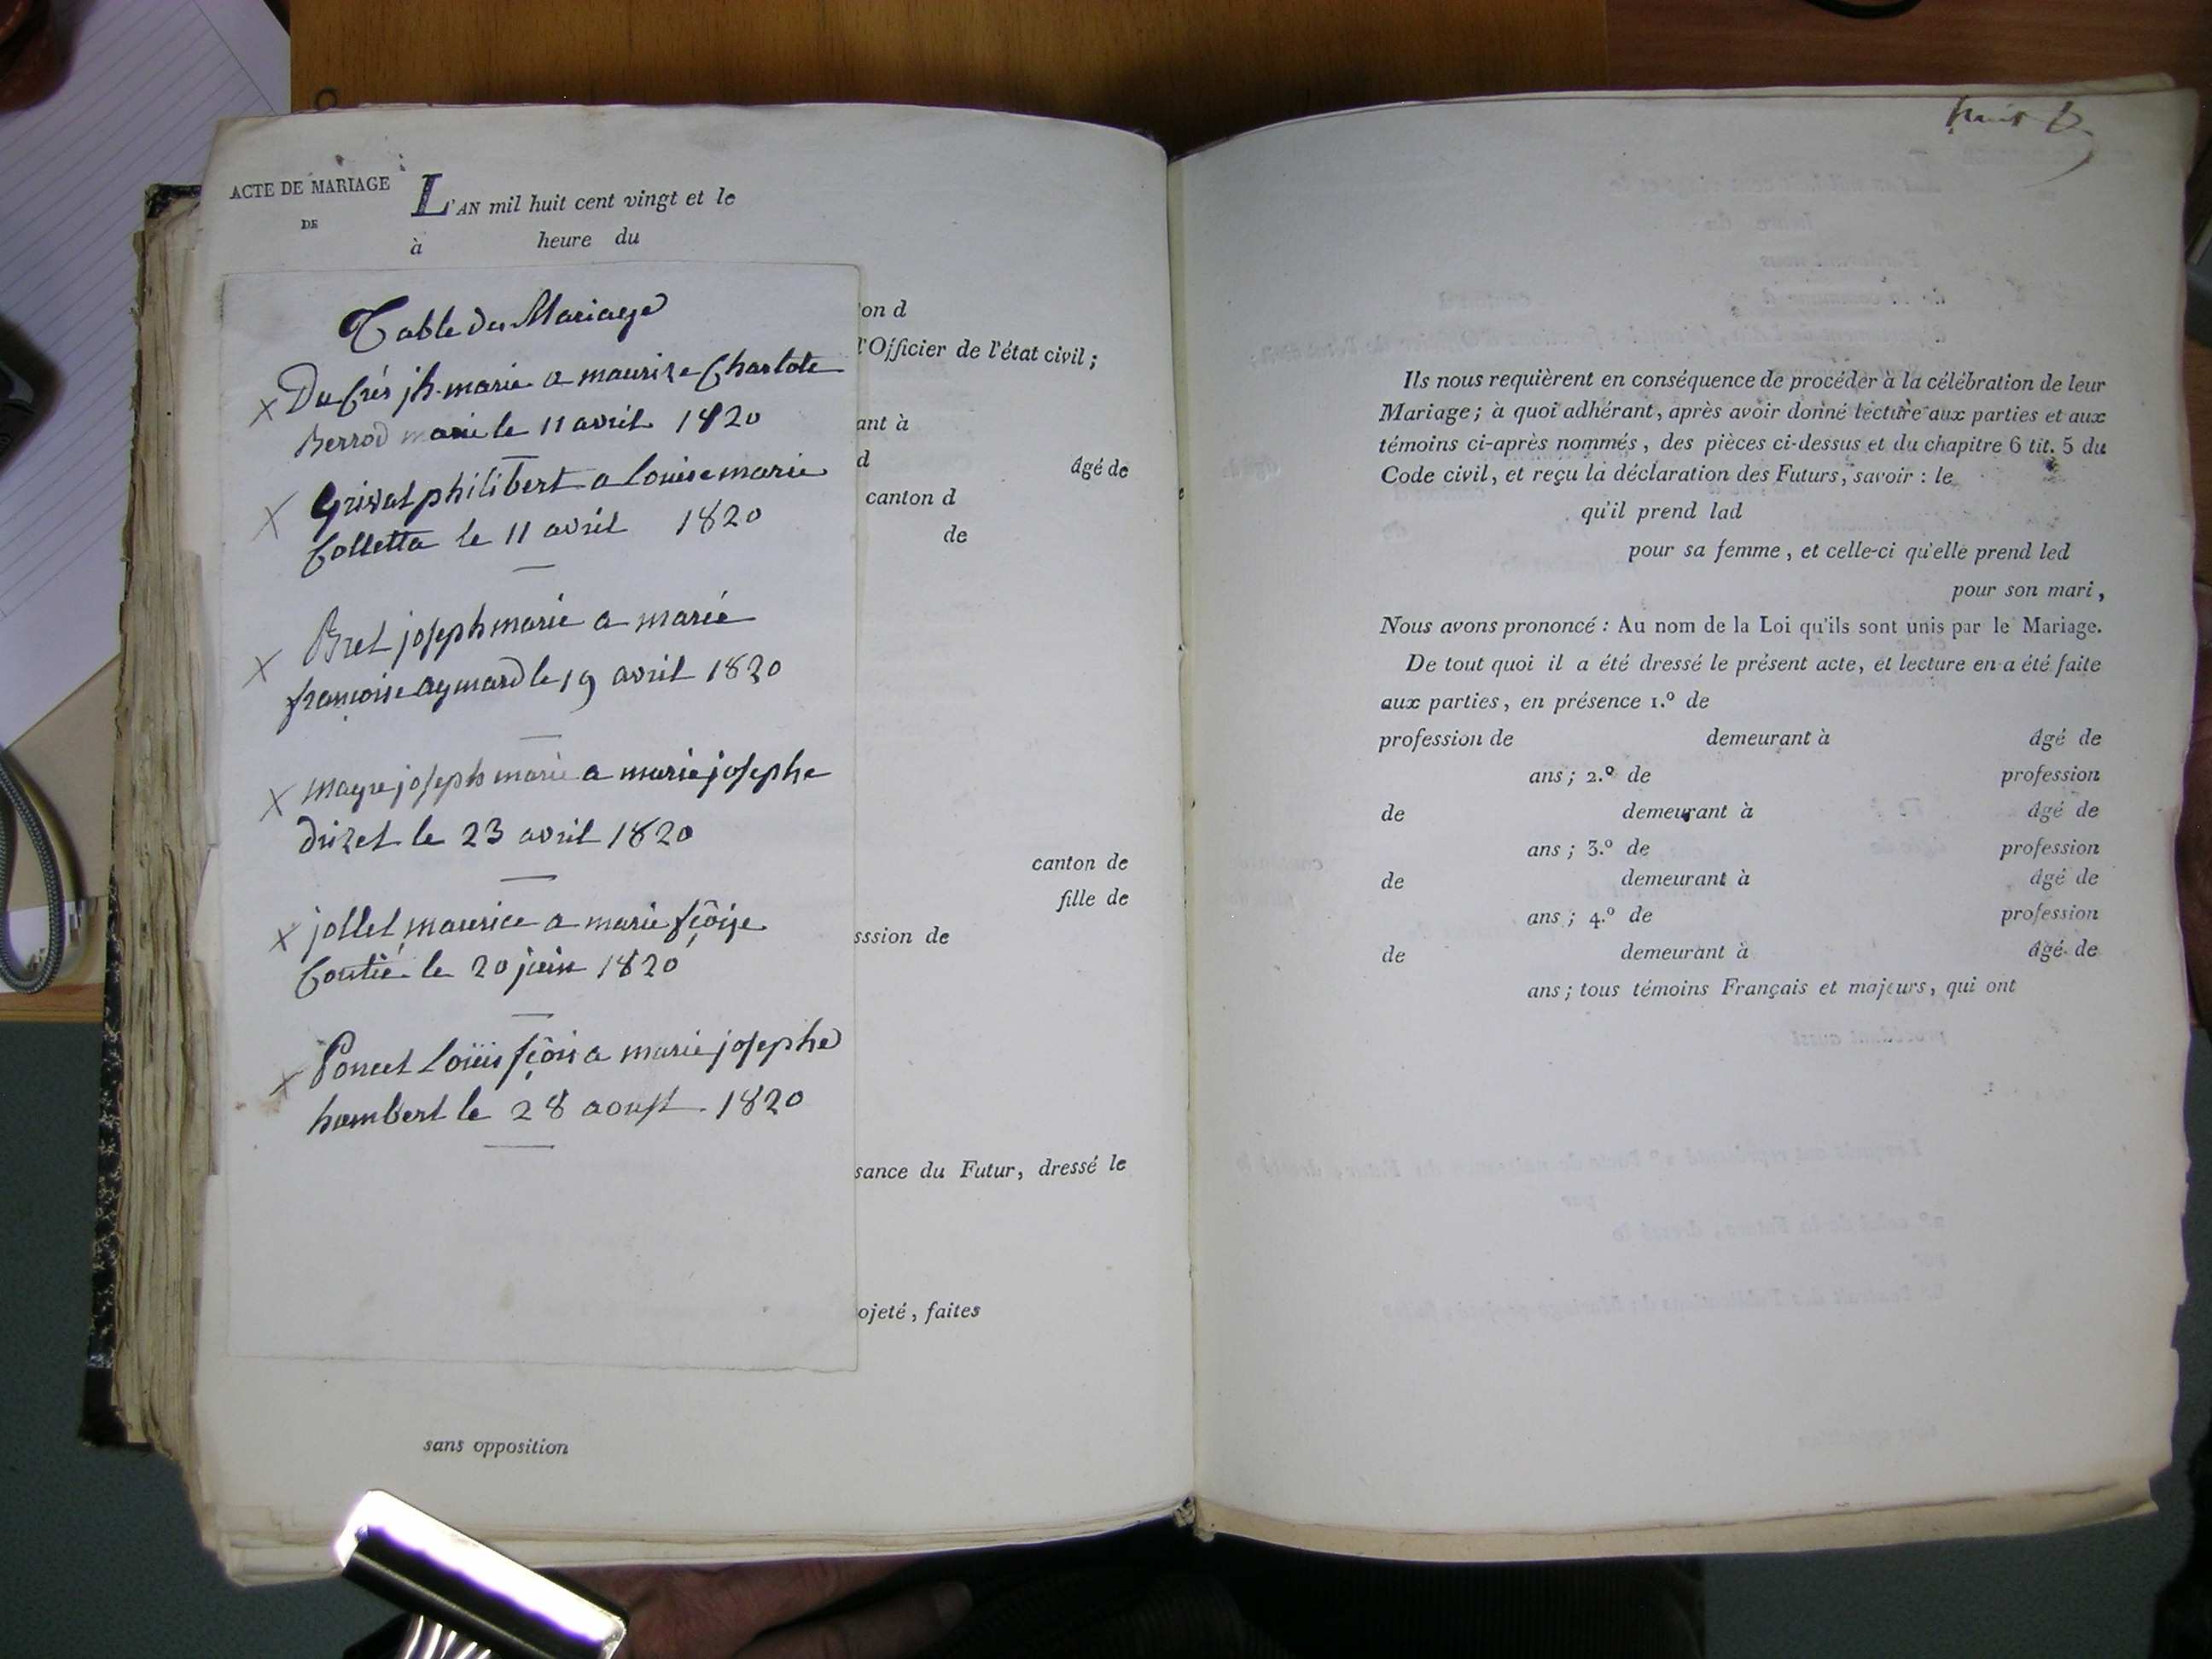 ACTE DE MARIAGE
DE
L'AN mil huit cent vingt et le
à heure du
Table des Mariage
x Ducrés jh. marie a maurize Charlote
Berrod marié le 11 avril 1820
x Grivat philibert a Louise marie
Colletta le 11 avril 1820
x Bret joseph marie a marie
françoise aymard le 19 avril 1820
x mayre joseph marie a marie josephe
druzet le 23 avril 1820
x jollet maurice a marie fçoise
le 20 juin 1820
x Poncet Loüis fçois a marie josephe
humbert le 28 aoust 1820
on d
l'Officier de l'état civil ;
ant à
d âgé de
canton d
de
canton de
fille de
sssion de
sance du Futur, dressé le
ojeté, faites
sans opposition
Ils nous requièrent en conséquence de procéder à la célébration de leur
Mariage ; à quoi adhérant, après avoir donné lecture aux parties et aux
témoins ci-après nommés, des pièces ci-dessus et du chapitre 6 tit. 5 du
Code civil, et reçu la déclaration des Futurs, savoir : le
qu'il prend lad
pour sa femme, et celle-ci qu'elle prend led
pour son mari,
Nous avons prononcé : Au nom de la Loi qu'ils sont unis par le Mariage.
De tout quoi il a été dressé le présent acte, et lecture en a été faite
aux parties, en présence 1.º de
profession de demeurant à âgé de
ans ; 2.º de profession
de demeurant à âgé de
ans ; 3.º de profession
de demeurant à âgé de
ans ; 4.º de profession
de demeurant à âgé de
ans ; tous témoins Français et majeurs, qui ont